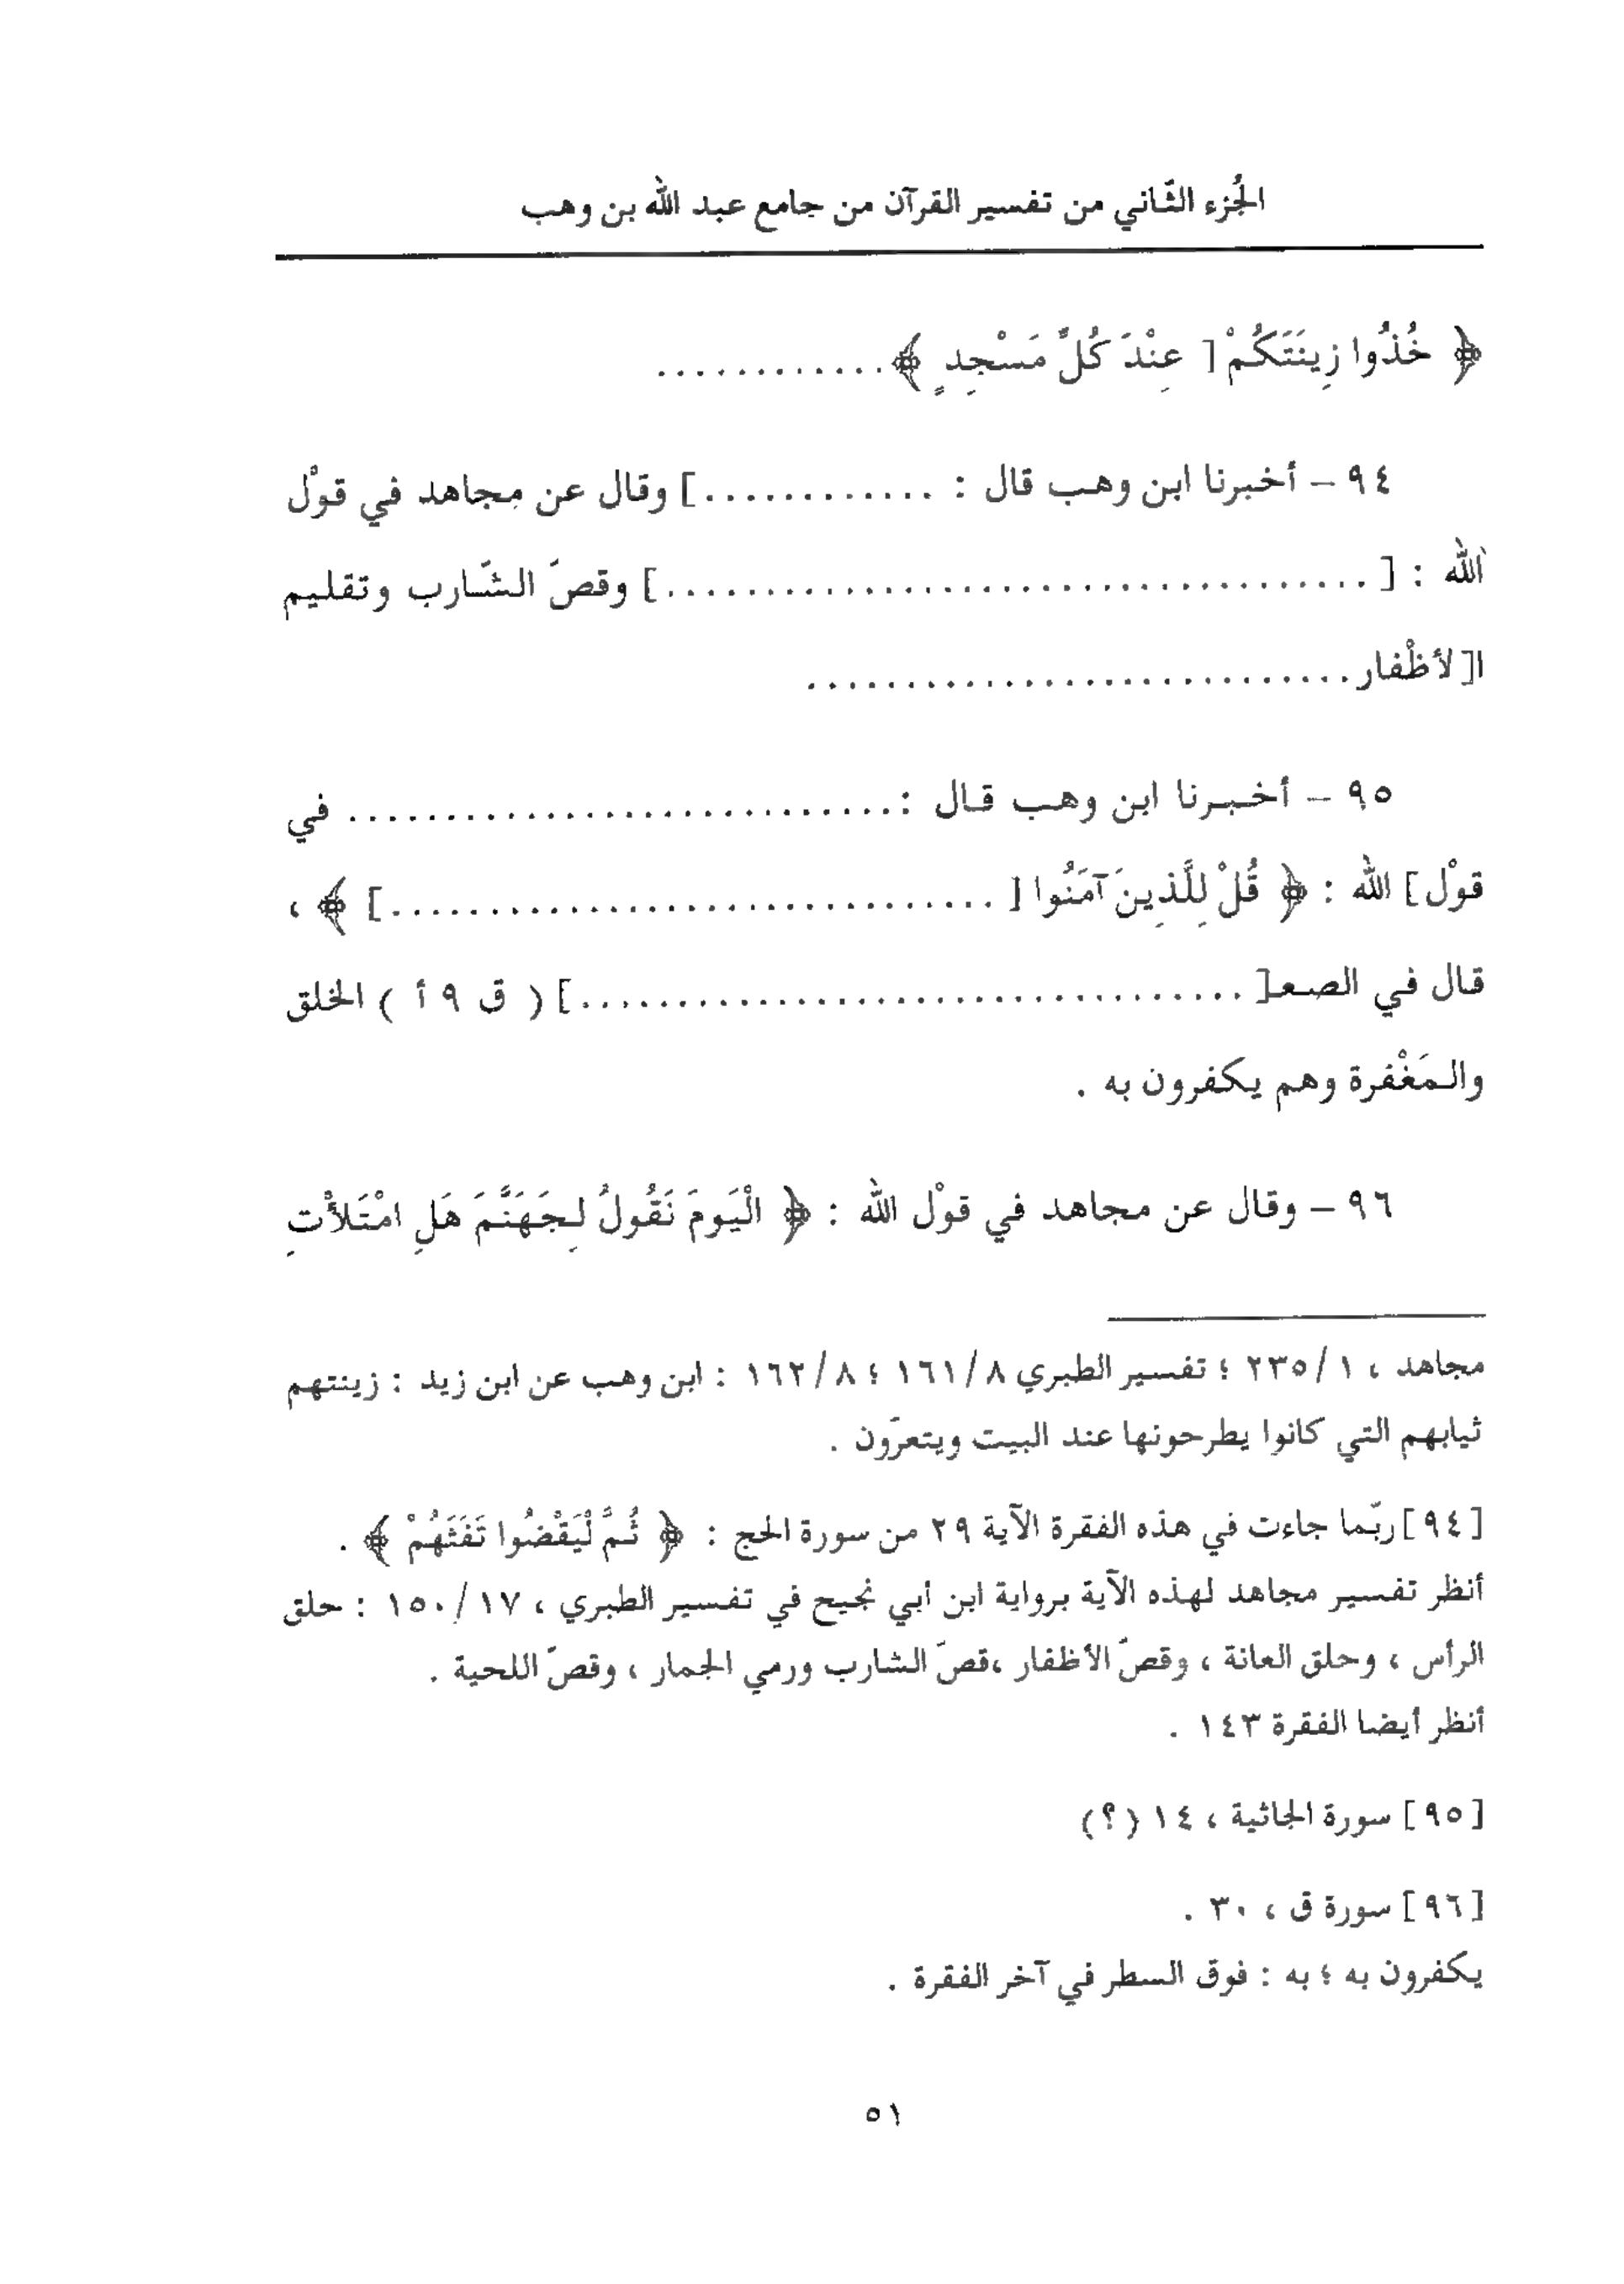 الجُزء الثّاني من تفسير القرآن من جامع عبد الله بن وهب
﴿ خُذُوا زِينَتَكُمْ [ عِنْدَ كُلِّ مَسْجِدٍ ﴾............
٩٤ – أخبرنا ابن وهب قال : ............] وقال عن مجاهد في قوْل
الله : [ ...................................] وقصّ الشّارب وتقليم
ا[لأظْفار............................
٩٥ – أخبرنا ابن وهب قال :............................ في
قوْل] الله : ﴿ قُلْ لِلَّذِينَ آمَنُوا [ ..............................] ﴾ ،
قال في الصعـ[ .................................] ( ق ٩ أ ) الخلق
والـمَغْفرة وهم يكفرون به .
٩٦ – وقال عن مجاهد في قوْل الله : ﴿ الْيَومَ نَقُولُ لِجَهَنَّمَ هَلِ امْتَلأْتِ
مجاهد ، ١/ ٢٣٥ ؛ تفسير الطبري ٨/ ١٦١ ؛ ٨/ ١٦٢ : ابن وهب عن ابن زيد : زينتهم
ثيابهم التي كانوا يطرحونها عند البيت ويتعرّون .
[٩٤] ربّما جاءت في هذه الفقرة الآية ٢٩ من سورة الحج : ﴿ ثُمَّ لْيَقْضُوا تَفَثَهُمْ ﴾ .
أنظر تفسير مجاهد لهذه الآية برواية ابن أبي نجيح في تفسير الطبري ، ١٧/ ١٥٠ : حلق
الرأس ، وحلق العانة ، وقصّ الأظفار ،قصّ الشارب ورمي الجمار ، وقصّ اللحية .
أنظر أيضا الفقرة ١٤٣ .
[٩٥] سورة الجاثية ، ١٤ (؟)
[٩٦] سورة ق ، ٣٠ .
يكفرون به ؛ به : فوق السطر في آخر الفقرة .
٥١